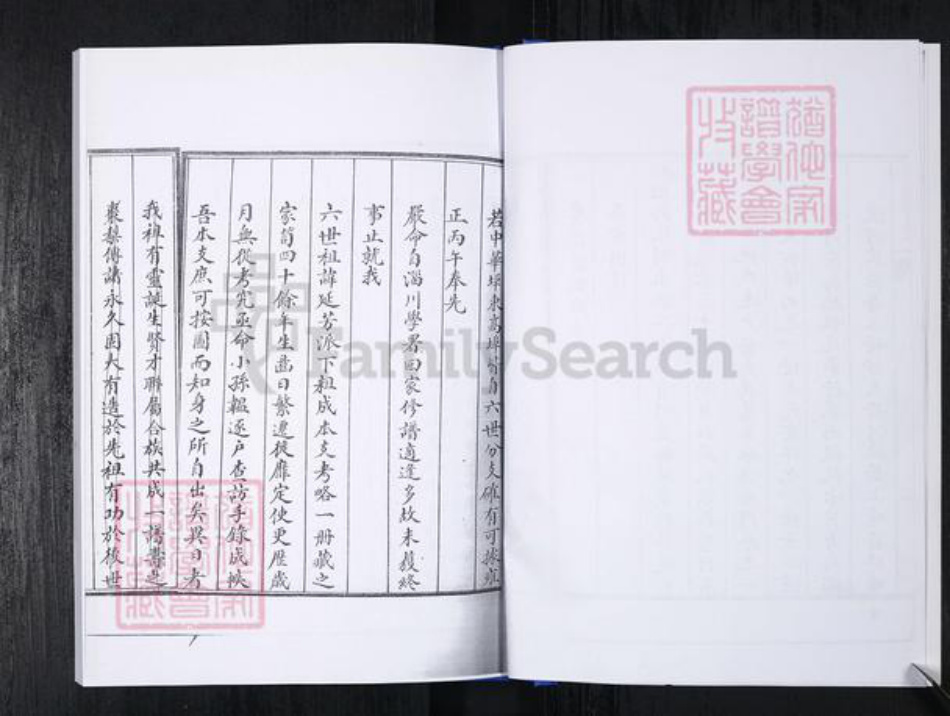 若中華埠東高埠等自六世分支確有可據或
正丙午奉先
嚴命自淄川學署回家修譜適逢多故未獲終
事止就我
六世祖諱延芳派下粗成本支考略一冊藏之
家笥四十餘年生齒日繁遷徙靡定使更歷歲
月無從考究亟命小孫韞逐戶查訪手錄成帙
吾本支庶可按圖而知身之所自出矣異日者
我祖有靈誕生賢才聯屬合族共成一譜壽之
棗梨傳諸永久固大有造於先祖有功於後世
猶他家
譜學會
收藏
猶他家
譜學會
收藏
FamilySearch